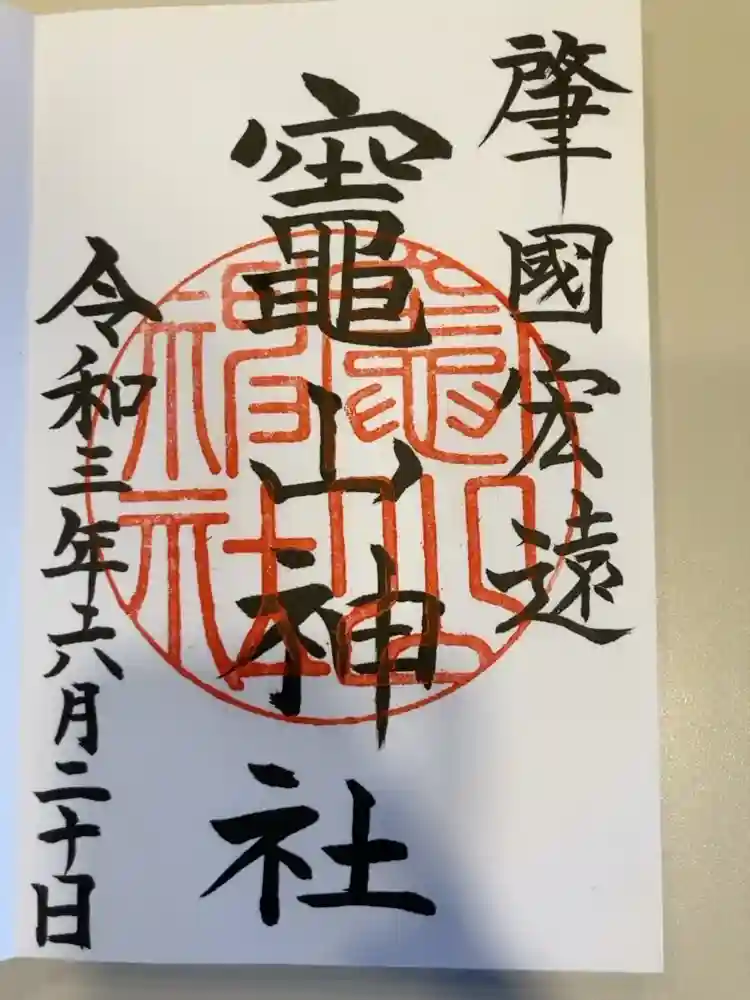 肇國宏遠
竈山神社
令和三年六月二十日
竈山
神社